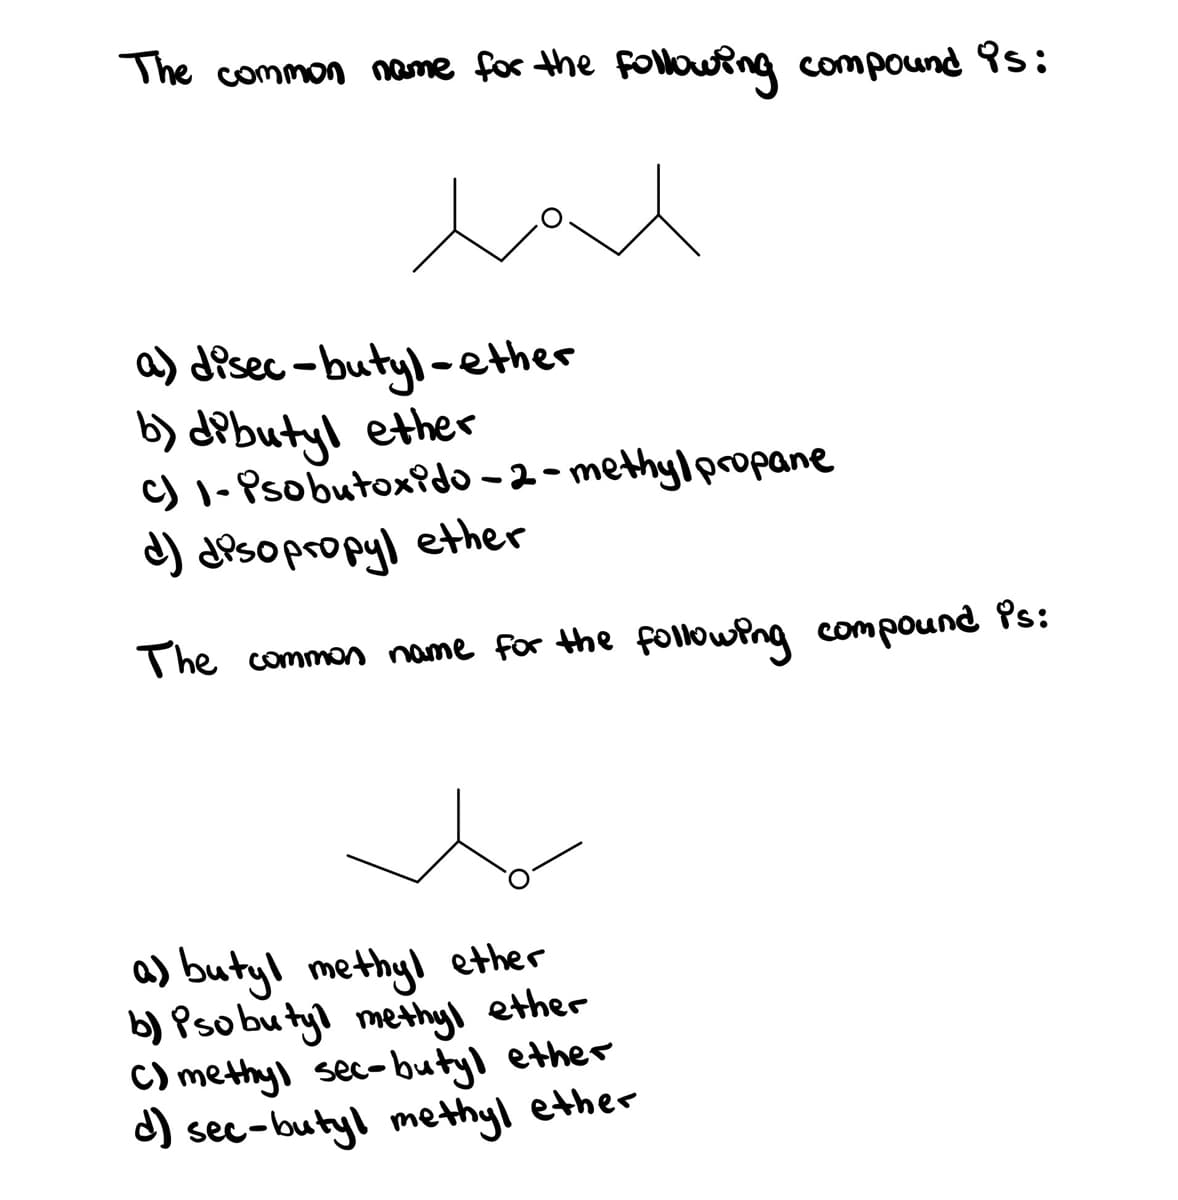 The common name for the following compound is:
O
a) disec-butyl-ether
b) dibutyl ether
c) 1-isobutoxido-2-methylpropane
d) disopropyl ether
The common name for the following compound is:
O
a) butyl methyl ether
b) isobutyl methyl ether
c) methyl sec-butyl ether
d) sec-butyl methyl ether